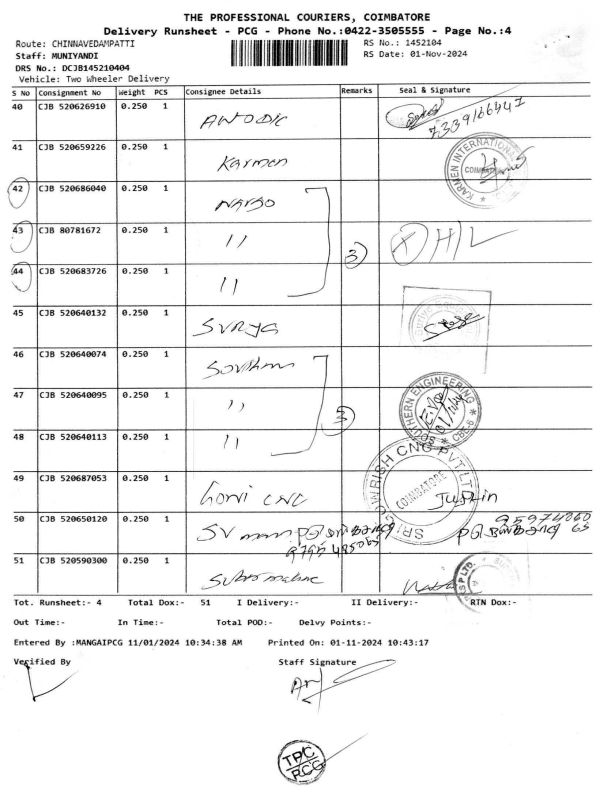 THE PROFESSIONAL COURIERS, COIMBATORE
Delivery Runsheet - PCG - Phone No.:0422-3505555 - Page No.:4
Route: CHINNAVEDAMPATTI RS No.: 1452104
Staff: MUNIYANDI RS Date: 01-Nov-2024
DRS No.: DCJB145210404
Vehicle: Two Wheeler Delivery
S No Consignment No Weight PCS Consignee Details Remarks Seal & Signature
40 CJB 520626910 0.250 1 ANODIC
7339166447
41 CJB 520659226 0.250 1 Karmen
KARMEN INTERNATIONAL COIMBATORE
42 CJB 520686040 0.250 1
43 CJB 80781672 0.250 1 11 3
44 CJB 520683726 0.250 1 11
45 CJB 520640132 0.250 1 SURYA
46 CJB 520640074 0.250 1 Southern
47 CJB 520640095 0.250 1 11 3 SOUTHERN ENGINEERING CBE-6
48 CJB 520640113 0.250 1 11
SRI GOWRISH CNC PVT LTD COIMBATORE
49 CJB 520687053 0.250 1 Justin
50 CJB 520650120 0.250 1
51 CJB 520590300 0.250 1
Tot. Runsheet:- 4 Total Dox:- 51 I Delivery:- II Delivery:- RTN Dox:-
Out Time:- In Time:- Total POD:- Delvy Points:-
Entered By :MANGAIPCG 11/01/2024 10:34:38 AM Printed On: 01-11-2024 10:43:17
Verified By Staff Signature
TPC
PCG